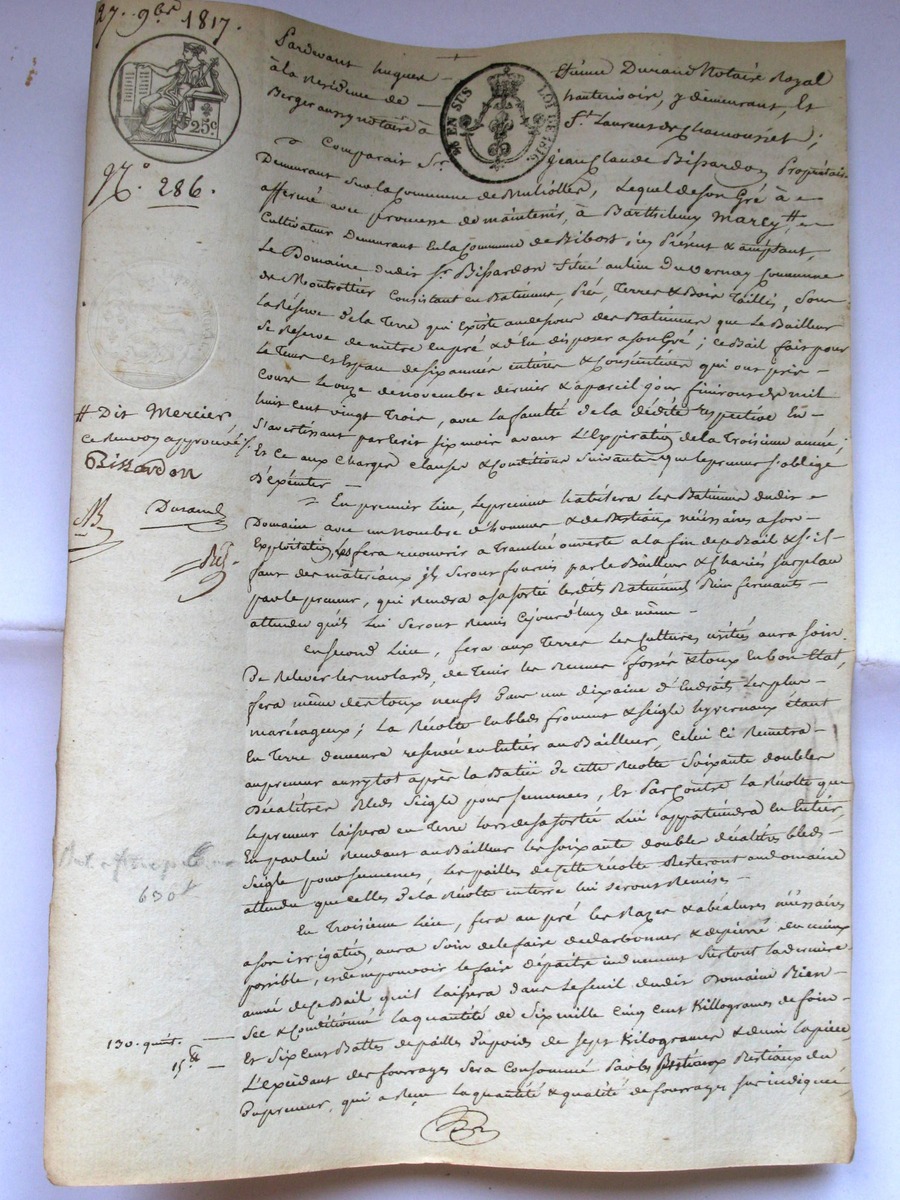 27. 9bre 1817.
25c
EN SUS LOI DE 1816
N°. 286.
Pardevant hugues Etienne Durand Notaire Royal
à la Résidence de hauterivoire, y demeurant, Et
Bergeraux notaire à St. Laurent de Chamousset;
Comparait Sr. jean Claude Bissardon Propriétaire
Demeurant Sur la Commune de Lequel de Son Gré à
affermé avec promesse de maintenir, à Barthelemy Marcy #
Cultivateur Demeurant En la Commune de Bibost, ici Présent & acceptant,
Le Domaine dudit Sr. Bissardon Situé au lieu Du vernay Commune
de Montrottier Consistant en Batiment, Pré, Terres & Bois Taillis, Sous
la Réserve de la Terre qui Existe au dessous des Batiments que Le Bailleur
Se Réserve de mettre en pré & d'En disposer a Son Gré; ce Bail fait pour
Le Tems et Espace de Six années entières & Consécutives qui ont pris
Cours Le onze de novembre dernier & a pareil jour finiront de mil
huit cent vingt Trois, avec la faculté de la dédite respective En
S'avertissant par Ecrit Six mois avant L'Expiration de la Troisieme année;
Et Ce aux Charges clauses & Conditions Suivantes que le preneur S'oblige
D'exécuter
# Dit Mercier
ce Renvoi approuvé
Bissardon
Durand
En premier Lieu, Le preneur habitera Les Batiments dudit
Domaine avec un nombre d'hommes & de Bestiaux nécessaires a Son
Exploitation, fera recouvrir a Tranchée ouverte a la fin de ce Bail & S'il
faut des materiaux ils Seront fournis par le Bailleur & Chariés Sur place
par le preneur, qui Rendra a Sa Sortie lesdits Batiments Bien fermants
attendu qu'ils Lui Seront Remis Cejourd'huy de même
En Second Lieu, fera aux Terres Les Cultures usitées aura Soin
De Relever les molards, de Tenir les fossés & Toux En bon Etat,
fera même des Toux neufs Dans une dixaine d'Endroits Les plus
marécageux; La Récolte En bleds froment & Seigle hyvernaux étant
En Terre demeure reservée en Entier au Bailleur, Celui Ci Remettra
au preneur aussytot après la Batüe De cette Récolte Soixante doubles
Décalitres Bleds Seigle pour Semences, Et Par Contre La Récolte que
le preneur laissera en Terre lors de Sa Sortie Lui appartiendra En Entier,
En par lui Rendant au Bailleur les Soixante doubles décalitres bleds
Seigle pour Semences, les pailles de Cette récolte Resteront au domaine
attendu que celles de la Récolte en terre lui Seront Remises
630
En Troisieme Lieu, fera au pré les Razes & abéatures nécessaires
a Son irrigation, aura Soin de le faire & depierré du mieux
possible, Sans pouvoir le faire dépaitre induement Surtout la derniere
année de ce Bail qu'il laissera dans Le fenil dudit Domaine Bien
Sec & Conditionné la quantité de Six mille Cinq Cent Killogrames de foin
130. quint.
Et Six Cent Battes de pailles Du poids de Sept Kilogrames & demi la pièce
L'Exédant des fourrages Sera Consommé Par les Bestiaux Bestiaux du
Dupreneur, qui a Reçu la quantité & qualité de fourrages Sus indiquée